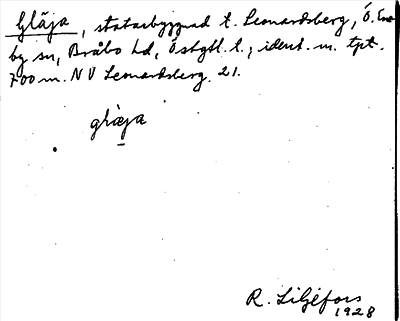 Gläja, statarbyggnad t. Leonardsberg, Ö. Ene-
by sn, Bråbo hd, Östgtl. l.; ident. m. tpt.
700 m. NV Leonardsberg. 21.
gläja
R. Liljefors
1928